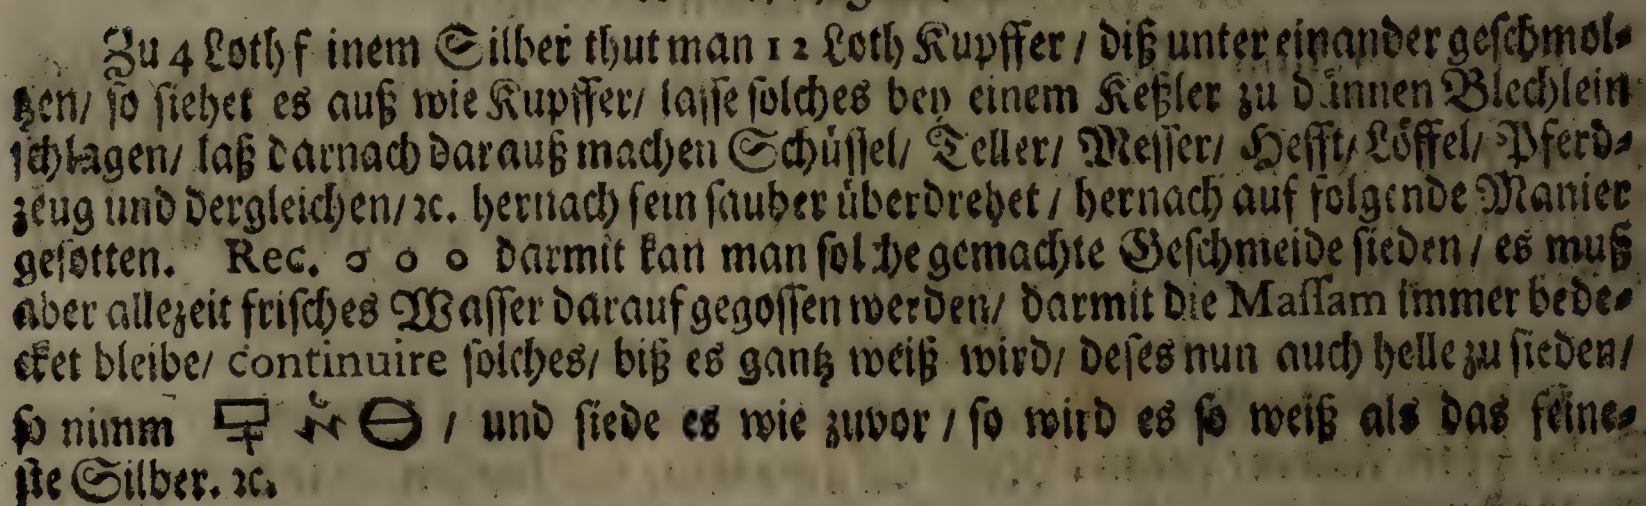 Zu 4 Loth f inem Silber thut man 12 Loth Kupffer / diß unter einander geschmol-
tzen/ so siehet es auß wie Kupffer/ lasse solches bey einem Keßler zu dünnen Blechlein
schlagen/ laß darnach darauß machen Schüssel/ Teller/ Messer/ Hefft/ Löffel/ Pferd-
zeug und dergleichen/ ꝛc. hernach fein sauber überdrehet / hernach auf folgende Manier
gesotten. Rec. o o o darmit kan man solche gemachte Geschmeide sieden / es muß
aber allezeit frisches Wasser darauf gegossen werden/ darmit die Massam immer bede-
cket bleibe/ continuire solches/ biß es gantz weiß wird/ deses nun auch helle zu sieden/
so nimm / und siede es wie zuvor / so wird es so weiß als das feine-
ste Silber. ꝛc.